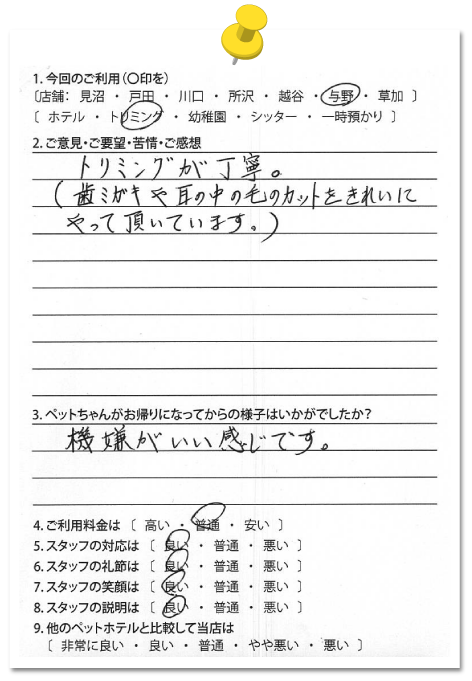 1. 今回のご利用(〇印を)
〔店舗： 見沼 ・ 戸田 ・ 川口 ・ 所沢 ・ 越谷 ・ 与野 ・ 草加 〕
〔 ホテル ・ トリミング ・ 幼稚園 ・ シッター ・ 一時預かり 〕
2. ご意見・ご要望・苦情・ご感想
トリミングが丁寧。
(歯ミガキや耳の中の毛のカットをきれいに
やって頂いています。)
3. ペットちゃんがお帰りになってからの様子はいかがでしたか?
機嫌がいい感じです。
4. ご利用料金は 〔 高い ・ 普通 ・ 安い 〕
5. スタッフの対応は 〔 良い ・ 普通 ・ 悪い 〕
6. スタッフの礼節は 〔 良い ・ 普通 ・ 悪い 〕
7. スタッフの笑顔は 〔 良い ・ 普通 ・ 悪い 〕
8. スタッフの説明は 〔 良い ・ 普通 ・ 悪い 〕
9. 他のペットホテルと比較して当店は
〔 非常に良い ・ 良い ・ 普通 ・ やや悪い ・ 悪い 〕